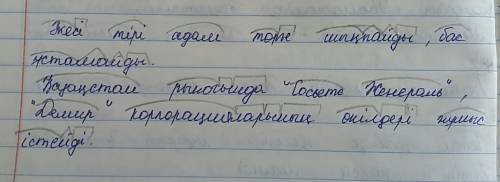 Жесі тірі адам тонн шықпайды, бас
ұстамайды.
Қазақстан рыногында "Госьете Женераль",
"Демир" корпорацияларының өкілдері жұмыс
істейді.